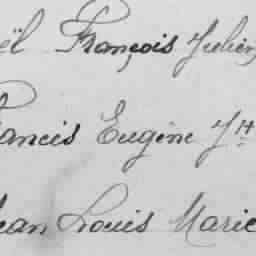 ël François Julien
Francis Eugène Jh
Jean Louis Marie